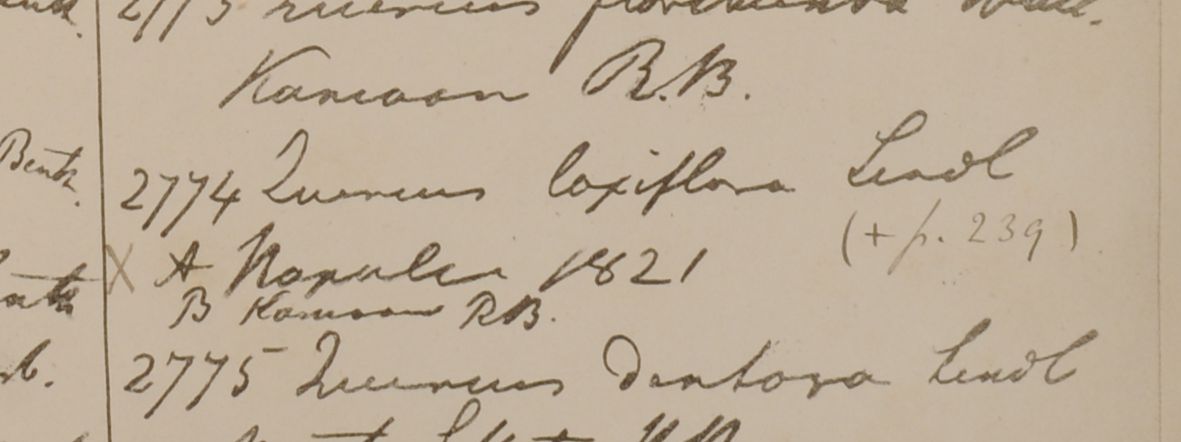 2773 Quercus floribunda Wall.
Kamaon R.B.
Benth.
2774 Quercus laxiflora Lindl
(+ p. 239)
X A Napalia 1821
B Kamaon RB.
2775 Quercus dentosa Lindl